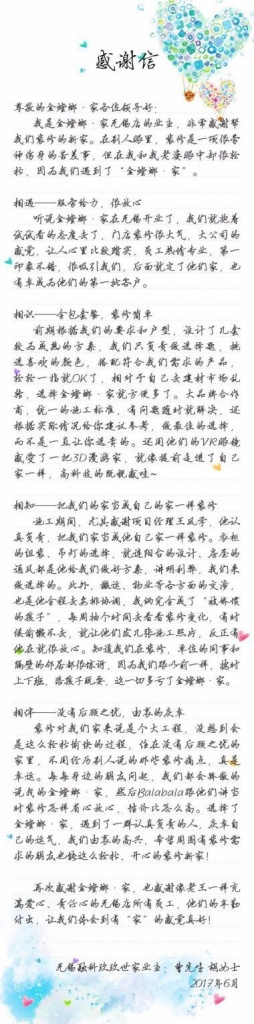 感谢信
尊敬的金螳螂·家各位领导好：
我是金螳螂·家无锡店的业主，非常感谢帮
我们装修的新家。在别人眼里，装修是一项很劳
神伤身的苦差事，但在我和我老婆眼中却很轻
松，因为我们遇到了“金螳螂·家”。
相遇——服务给力，很放心
听说金螳螂·家在无锡开业了，我们就抱着
试试看的态度去了，门店装修很大气，大公司的
感觉，让人心里比较踏实，员工热情专业，第一
印象不错，很吸引我们，后面就定了他们家，也
有幸成为他们的第一批客户。
相识——全包套餐，装修简单
前期根据我们的要求和户型，设计了几套
较为成熟的方案，我们只负责做选择题，挑
选喜欢的颜色，搭配符合我们需求的产品，
轻轻一指就OK了，相对于自己去建材市场乱
转，选择金螳螂·家就方便多了。大品牌合作
商，统一的施工标准，有问题随时就解决，还
根据实际情况给你建议参考，做最佳的选择，
而不是一直让你选贵的。还用他们的VR眼镜
感受了一把3D漫游家，就像提前走进了自己
家一样，高科技的既视感哇~
相知——把我们的家当成自己的家一样装修
施工期间，尤其感谢项目经理王凤学，他认
真负责，把我们家当成他自己家一样装修。衣柜
的组装、吊灯的选择，就连阳台的设计、店房的
通风都是他给我们做好方案，讲明利弊，我们来
做选择的。此外，搬运、物业等各方面的交涉，
也是他全程去高排协调，我俩完全成了“被娇惯
的孩子”，每周抽个时间去看看装修变化，有时
候偷懒不去，就让他们发几张施工照片，反正有
他在就很放心。知道我们在装修，单位的同事和
隔壁的邻居都很惊讶，因为我们跟以前一样，按时
上下班，陪孩子玩耍，这一切多亏了金螳螂·家。
相伴——没有后顾之忧，由衷的庆幸
装修对我们家来说是个大工程，没想到会
是这么轻松愉快的过程，住在没有后顾之忧的
家里，不用经历别人说的那些装修痛点，真是
幸运。每每身边的朋友问起，我们都会骄傲的
说我的金螳螂·家，然后Balabala跟他们讲当
时装修怎样省心放心，性价比怎么高。选择了
金螳螂·家，遇到了一群认真负责的人，庆幸自
己的运气，我们由衷的高兴，希望周围有装修需
求的朋友也能这么轻松、开心的装修新家！
再次感谢金螳螂·家，也感谢像老王一样充
满爱心、责任心的无锡店所有员工，他们的辛勤
付出，让我们体会到有“家”的感觉真好！
无锡融科玖玖世家业主：曹先生 胡女士
2017年6月